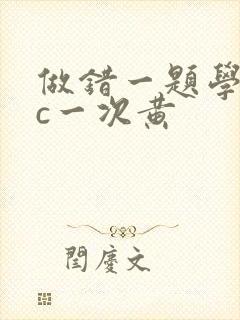 做錯一題學
c一次黃
閆慶文